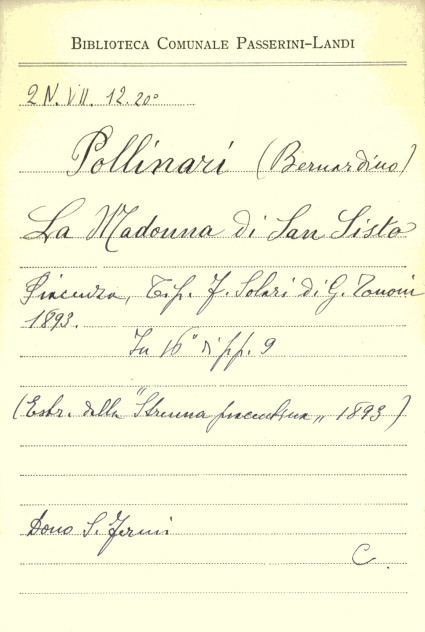 BIBLIOTECA COMUNALE PASSERINI-LANDI
2 N. VII. 12. 20°
Pollinari (Bernardino)
La Madonna di San Sisto
Piacenza, Tip. F. Solari di G. Tononi
1893.
In 16° di pp. 9
(Estr. dalla "Strenna piacentina„ 1893)
Dono S. Fermi
C.